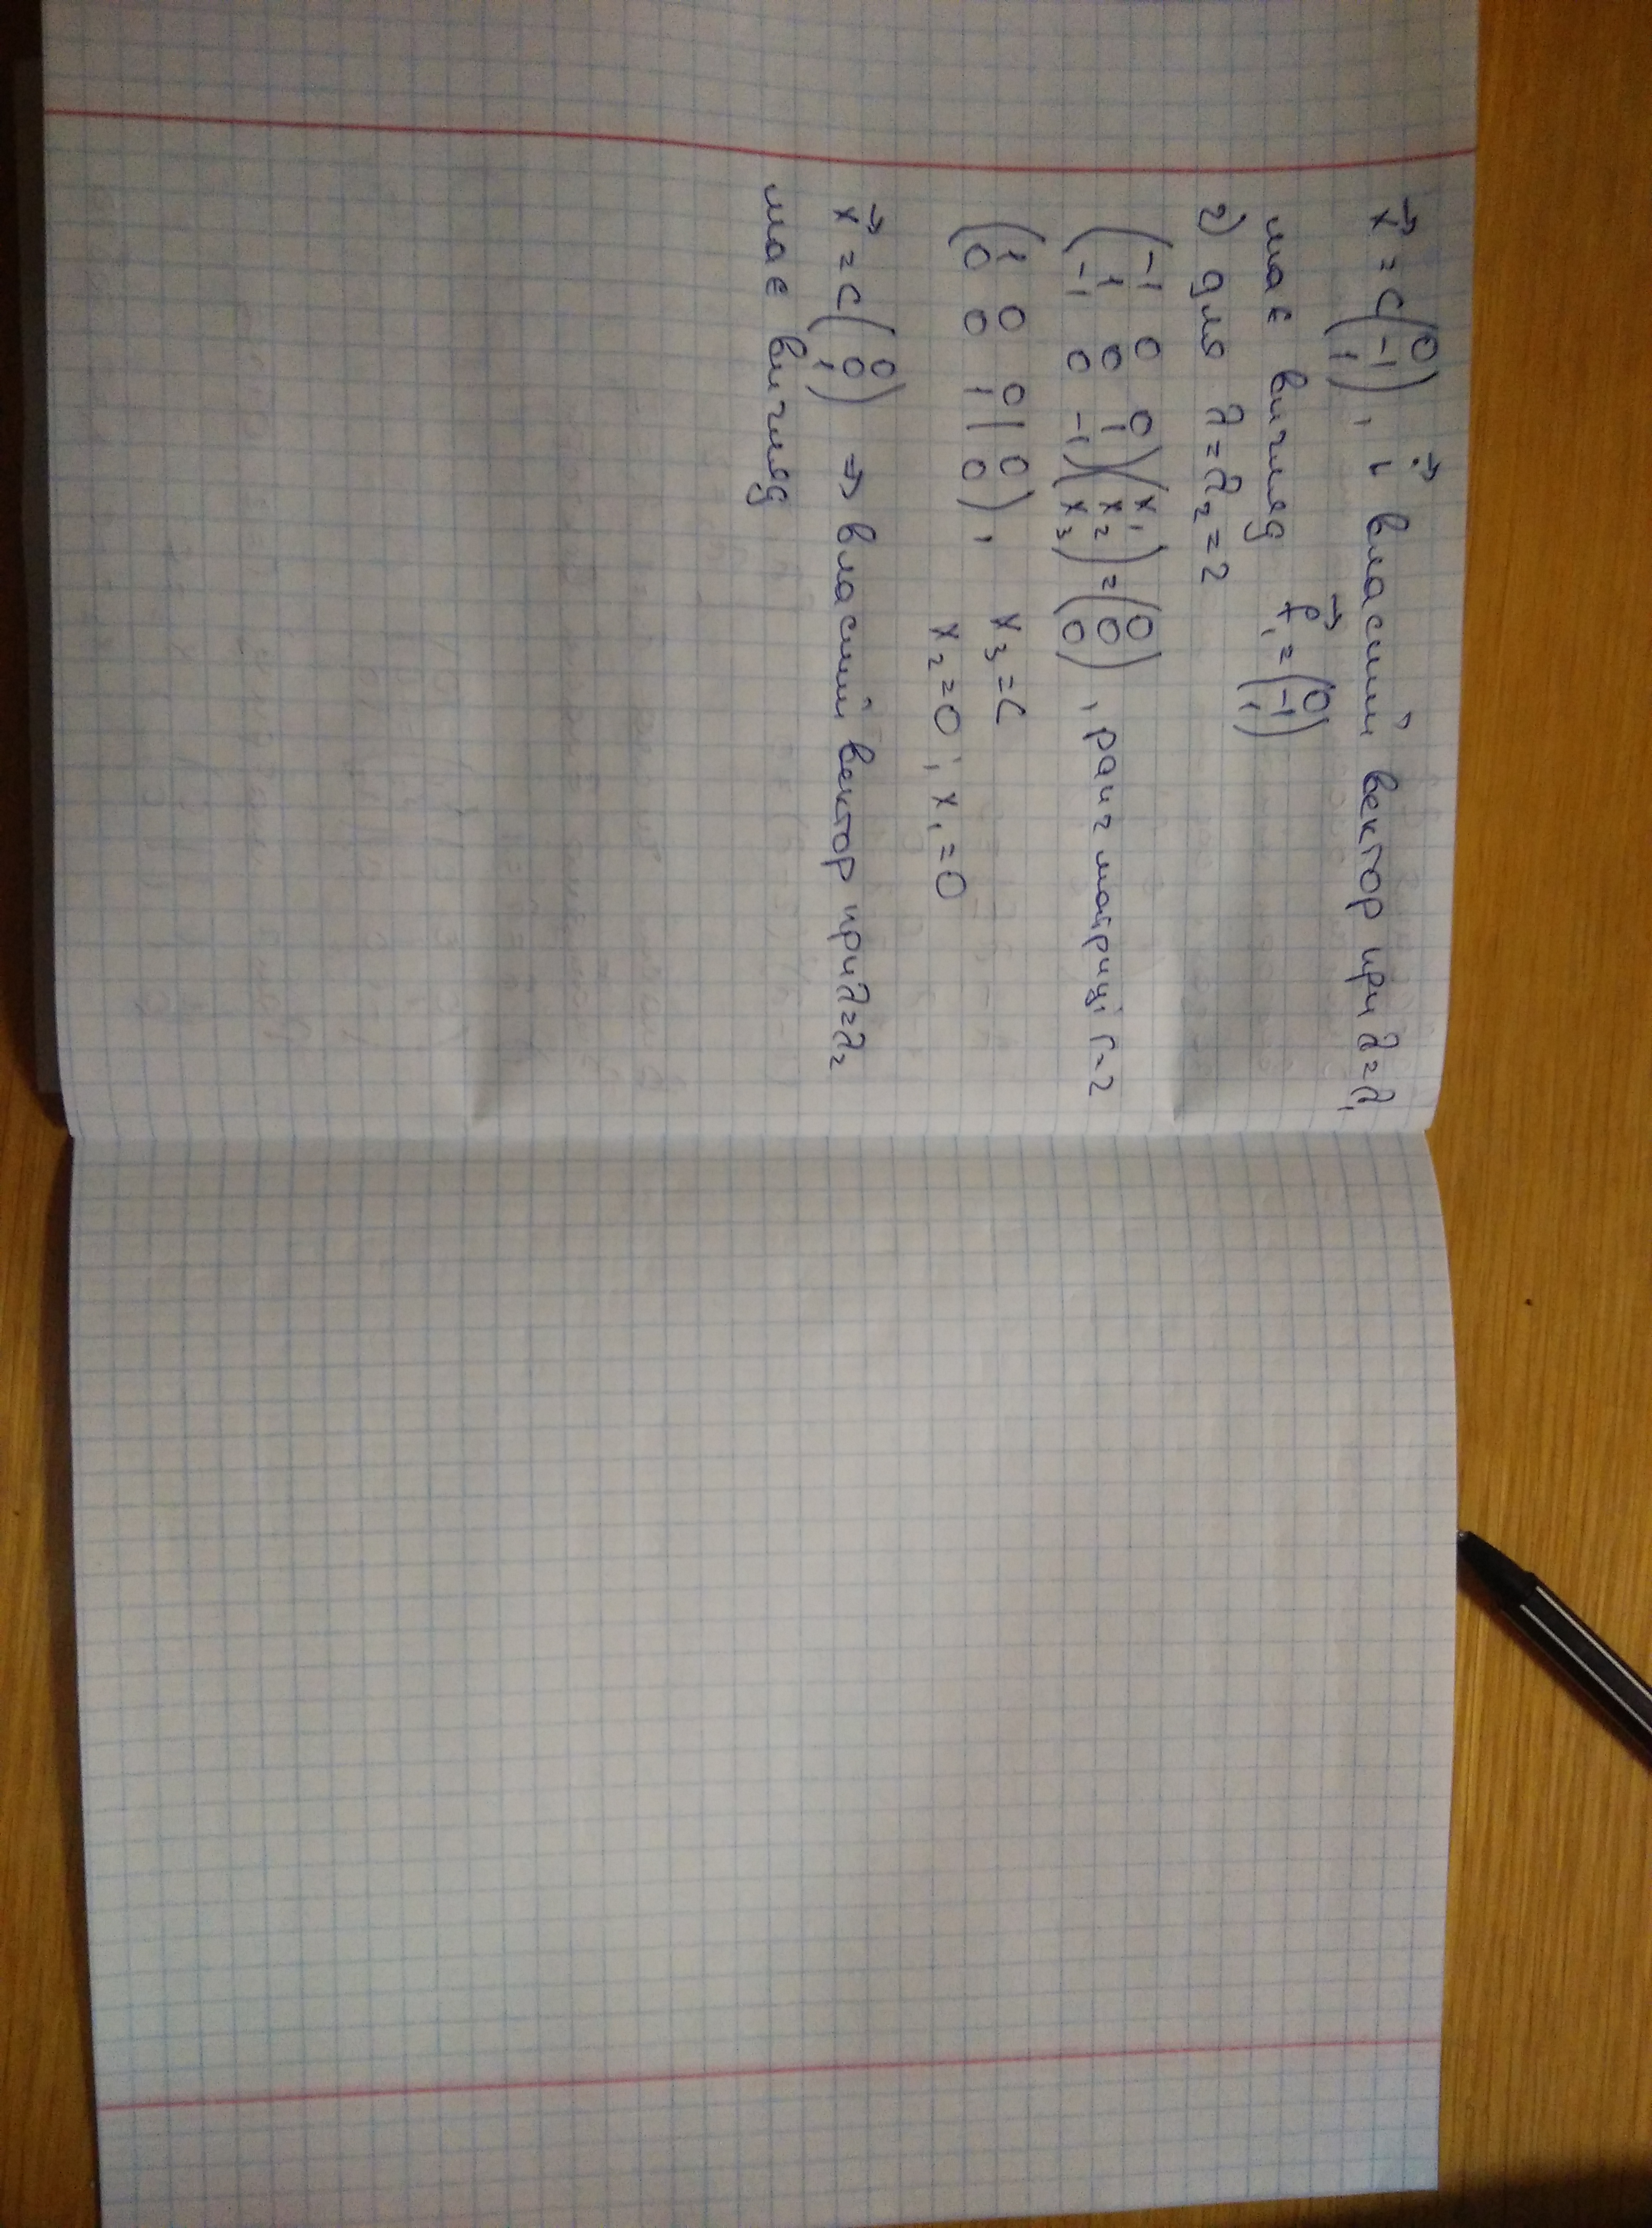 x⃗ = C(0 -1 1), і власний вектор при λ=λ₁
має вигляд f⃗₁ = (0 -1 1)
2) для λ=λ₂=2
(-1 0 0
1 0 1
-1 0 -1)(x₁ x₂ x₃) = (0 0 0), ранг матриці r=2
(1 0 0 | 0
0 0 1 | 0), x₃=C
x₂=0; x₁=0
x⃗ = C(0 0 1) ⇒ власний вектор при λ=λ₂
має вигляд